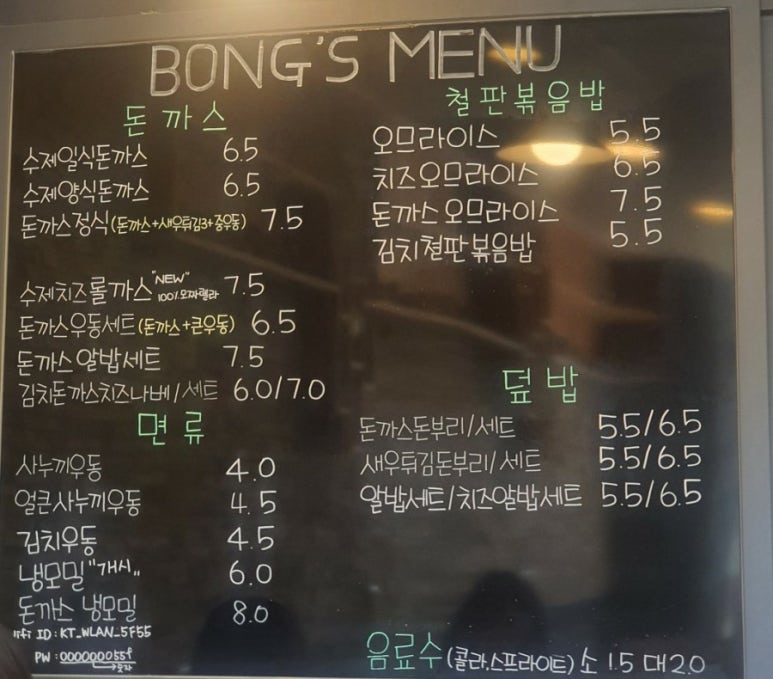 BONG'S MENU
돈까스
수제일식돈까스 6.5
수제양식돈까스 6.5
돈까스정식(돈까스+새우튀김3+중우동) 7.5
수제치즈롤까스 "NEW" 100%모짜렐라 7.5
돈까스우동세트(돈까스+큰우동) 6.5
돈까스알밥세트 7.5
김치돈까스치즈나베/세트 6.0/7.0
면류
사누끼우동 4.0
얼큰사누끼우동 4.5
김치우동 4.5
냉모밀 "개시" 6.0
돈까스 냉모밀 8.0
ID: KT_WLAN_5F55
PW: 000000055f
숫자
철판볶음밥
오므라이스 5.5
치즈오므라이스 6.5
돈까스오므라이스 7.5
김치철판볶음밥 5.5
덮밥
돈까스돈부리/세트 5.5/6.5
새우튀김돈부리/세트 5.5/6.5
알밥세트/치즈알밥세트 5.5/6.5
음료수(콜라.스프라이트) 소 1.5 대 2.0